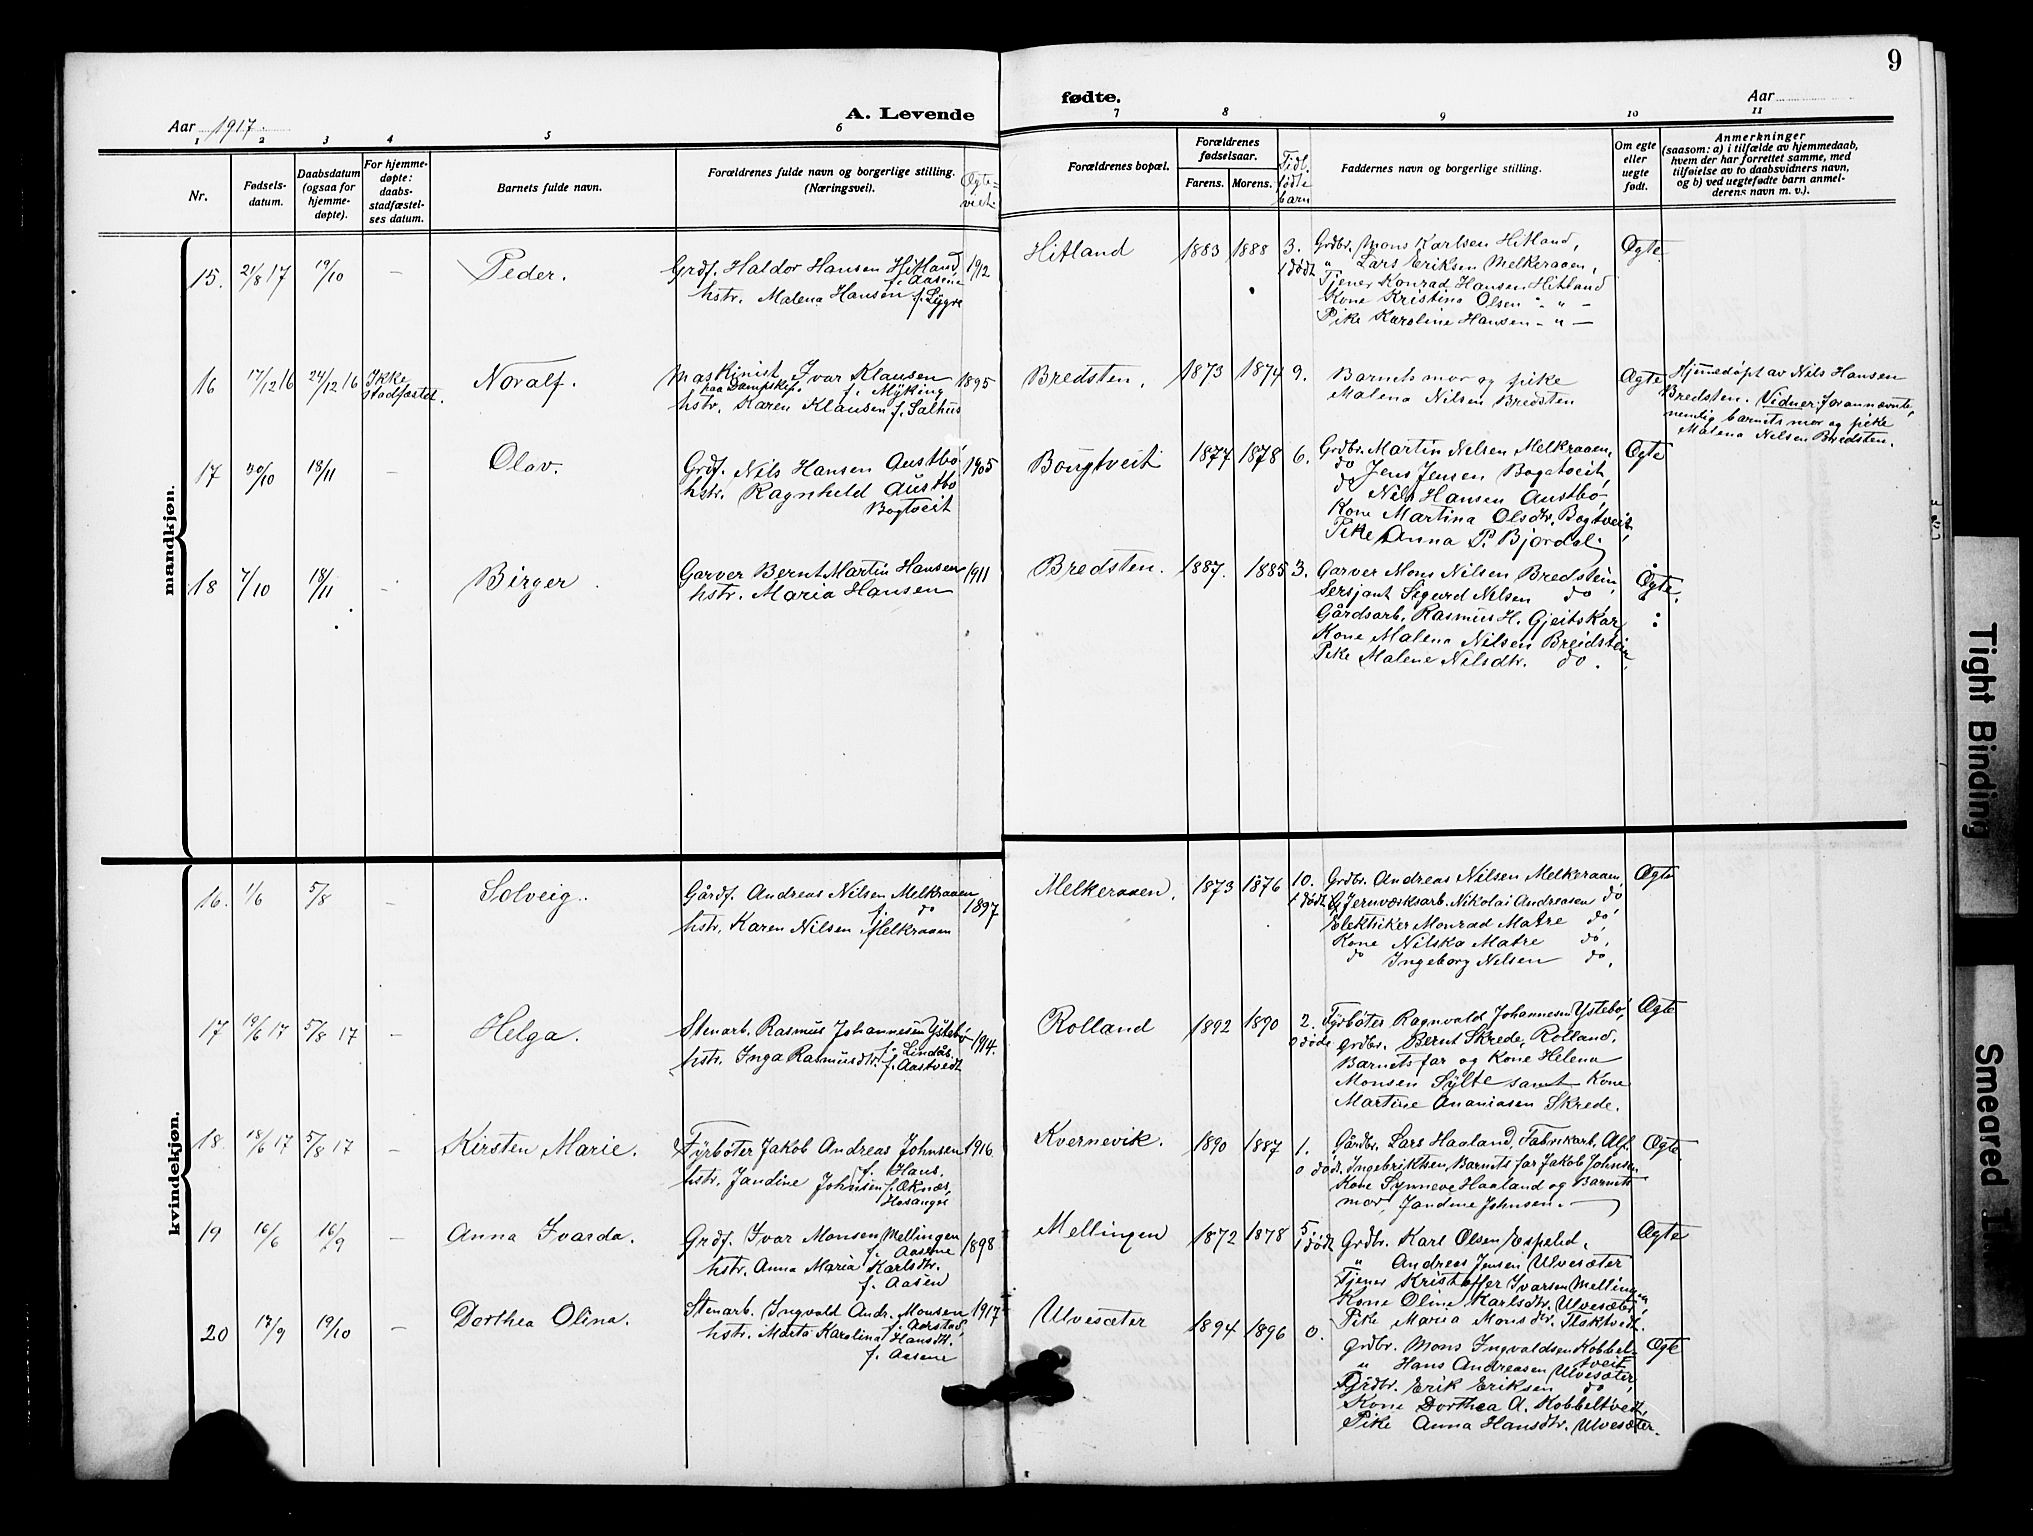 9
Aar 1917.
A. Levende
fødte.
Aar
1 2 3 4 5 6 7 8 9 10 11
Nr.
Fødsels-
datum.
Daabsdatum
(ogsaa for
hjemme-
døpte).
For hjemme-
døpte:
daabs-
stadfæstel-
ses datum.
Barnets fulde navn.
Forældrenes fulde navn og borgerlige stilling.
(Næringsvei).
Ægte-
viet.
Forældrenes bopæl.
Forældrenes
fødselsaar.
Farens. Morens.
Tidl.
fødte
barn
Faddernes navn og borgerlige stilling.
Om egte
eller
uegte
født.
Anmerkninger
(saasom: a) i tilfælde av hjemmedaab,
hvem der har forrettet samme, med
tilføielse av to daabsvidners navn,
og b) ved uegtefødte barn anmel-
derens navn m. v.).
mandkjøn.
15. 21/8 17 19/10 – Peder.
Grdf. Haldor Hansen Hitland, 1912
f. Aasene
hstr. Malena Hansen f. Lygre
Hitland 1883 1888 3.
1 dødt
Grdbr. Mons Karlsen Hitland,
" Lars Eriksen Melkeraaen,
Tjener Konrad Hansen Hitland
Kone Kristina Olsen - " -
Pike Karoline Hansen - " -
Ægte
16 17/12 16 24/12 16 Ikke
stadfæstet. Noralf.
Maskinist Ivar Klausen 1895
paa Dampskef. f. Myking
hstr. Karen Klausen f. Salhus
Bredsten. 1873 1874 9.
Barnets mor og pike
Malena Nilsen Bredsten
Ægte
Hjemedøpt av Nils Hansen
Bredsten. Vidner: forannævnte,
nemlig barnets mor og pike
Malena Nelsen Bredsten.
17 30/10 18/11 – Olav.
Grdf. Nils Hansen Austbø 1905
hstr. Ragnhild Austbø
Bogtveit
Bougtveit 1877 1878 6.
Grdbr. Martin Nelsen Melkraaen,
do Jens Jensen Bogatveit,
do Nils Hansen Austbø,
Kone Martina Olsdtr. Bogtveit,
Pike Anna P. Bjordal.
Ægte
18 7/10 18/11 - Birger.
Garver Bernt Martin Hansen 1911
hstr. Maria Hansen
Bredsten. 1887. 1885 3.
Garver Mons Nilsen Bredstein,
Sersjant Sigurd Nelsen do,
Gårdsarb. Rasmus H. Gjeitskar,
Kone Malena Nilsen Breidstein,
Pike Malene Nilsdtr. do.
Ægte.
kvindekjøn.
16. 1/6 5/8 – Solveig.
Gårdf. Andreas Nilsen Melkraaen 1897
f. do
hstr. Karen Nilsen Melkraaen
Melkeraaen. 1873 1876 10.
1 dødt
Grdbr. Andreas Nilsen Melkeraaen,
Jernværksarb. Nikolai Andreasen do
Elektriker Monrad Matre do,
Kone Nilska Matre do,
do Ingeborg Nelsen do,
Ægte
17 19/6 17 5/8 17 – Helga.
Stenarb. Rasmus Johannesen Ystebø 1914.
f. Lindås.
hstr. Inga Rasmusdtr. f. Aastvedt
Rolland 1892 1890 2.
0 døde
Fyrbøter Ragnvald Johannesen Ystebø,
Grdbr. Bernt Skrede, Rolland,
Barnets far og Kone Helena
Monsen Sylte samt Kone
Martine Ananiasen Skrede.
Ægte
18. 18/6 17 5/8 17 – Kirsten Marie.
Fyrbøter Jakob Andreas Johnsen 1916
f. Haus.
hstr. Jandine Johnsen f. Øknæs,
Hosanger
Kvernevik. 1890 1887 1.
0 dødt.
Gårdbr. Lars Haaland, Fabrikarb. Alf.
Ingebriktsen, Barnets far Jakob Johnsen,
Kone Synneve Haaland og Barnets
mor, Jandine Johnsen.
Ægte.
19 16/6 16/9 – Anna Ivarda.
Grdf. Ivar Monsen Mellingen 1898
f. Aasene
hstr. Anna Maria Karlsdtr.
f. Aasen
Mellingen 1872 1878 5
1 dødt
Grdbr. Karl Olsen Espelid,
" Andreas Jensen Ulvesæter
Tjener Kristoffer Ivarsen Mellingen,
Kone Oline Karlsdtr. Ulvesæter,
Pike Maria Monsdtr. Flaktvedt.
Ægte
20 17/9 19/10 – Dorthea Olina.
Stenarb. Ingvald Andr. Monsen 1917
f. Aarstad,
hstr. Marta Karolina Hansdtr.
f. Aasene
Ulvesæter 1894 1896 0.
Grdbr. Mons Ingvaldsen Kobbel-
tveit
" Hans Andreasen Ulvesæter,
Grdbr. Erik Eriksen do
Kone Dorthea A. Kobbeltvedt,
Pike Anna Hansdtr. Ulvesæter.
Ægte
Tight Binding
Smeared I